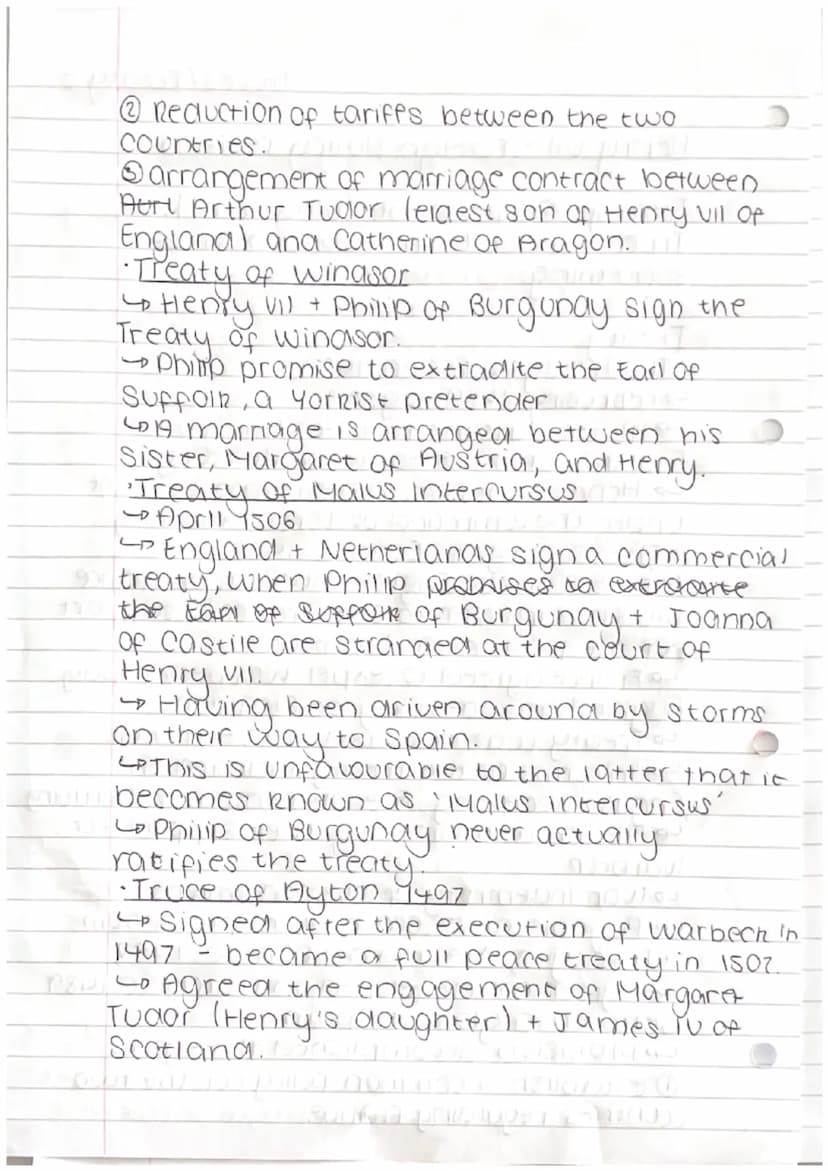 ② Reduction of tariffs between the two
countries.
③ arrangement of marriage contract between
Arthur Tudor (eldest son of Henry VII of
England) and Catherine of Aragon.
· Treaty of Windsor
↳ Henry VII + Philip of Burgunay sign the
Treaty of Windsor.
↳ Philip promise to extradite the Earl of
Suffolk, a Yorkist pretender
↳ A marriage is arranged between his
Sister, Margaret of Austria, and Henry.
· Treaty of Malus Intercursus
↳ April 1506
↳ England + Netherlands sign a commercial
treaty, when Philip promises to extradite
the Earl of Suffolk of Burgunay + Joanna
of Castile are stranded at the court of
Henry VII.
↳ Having been driven around by storms
on their way to Spain.
↳ This is unfavourable to the latter that it
becomes known as 'Malus intercursus'
↳ Philip of Burgunay never actually
ratifies the treaty.
· Truce of Ayton 1497
↳ Signed after the execution of Warbeck in
1497 - became a full peace treaty in 1502.
↳ Agreed the engagement of Margaret
Tudor (Henry's daughter) + James IV of
Scotland.